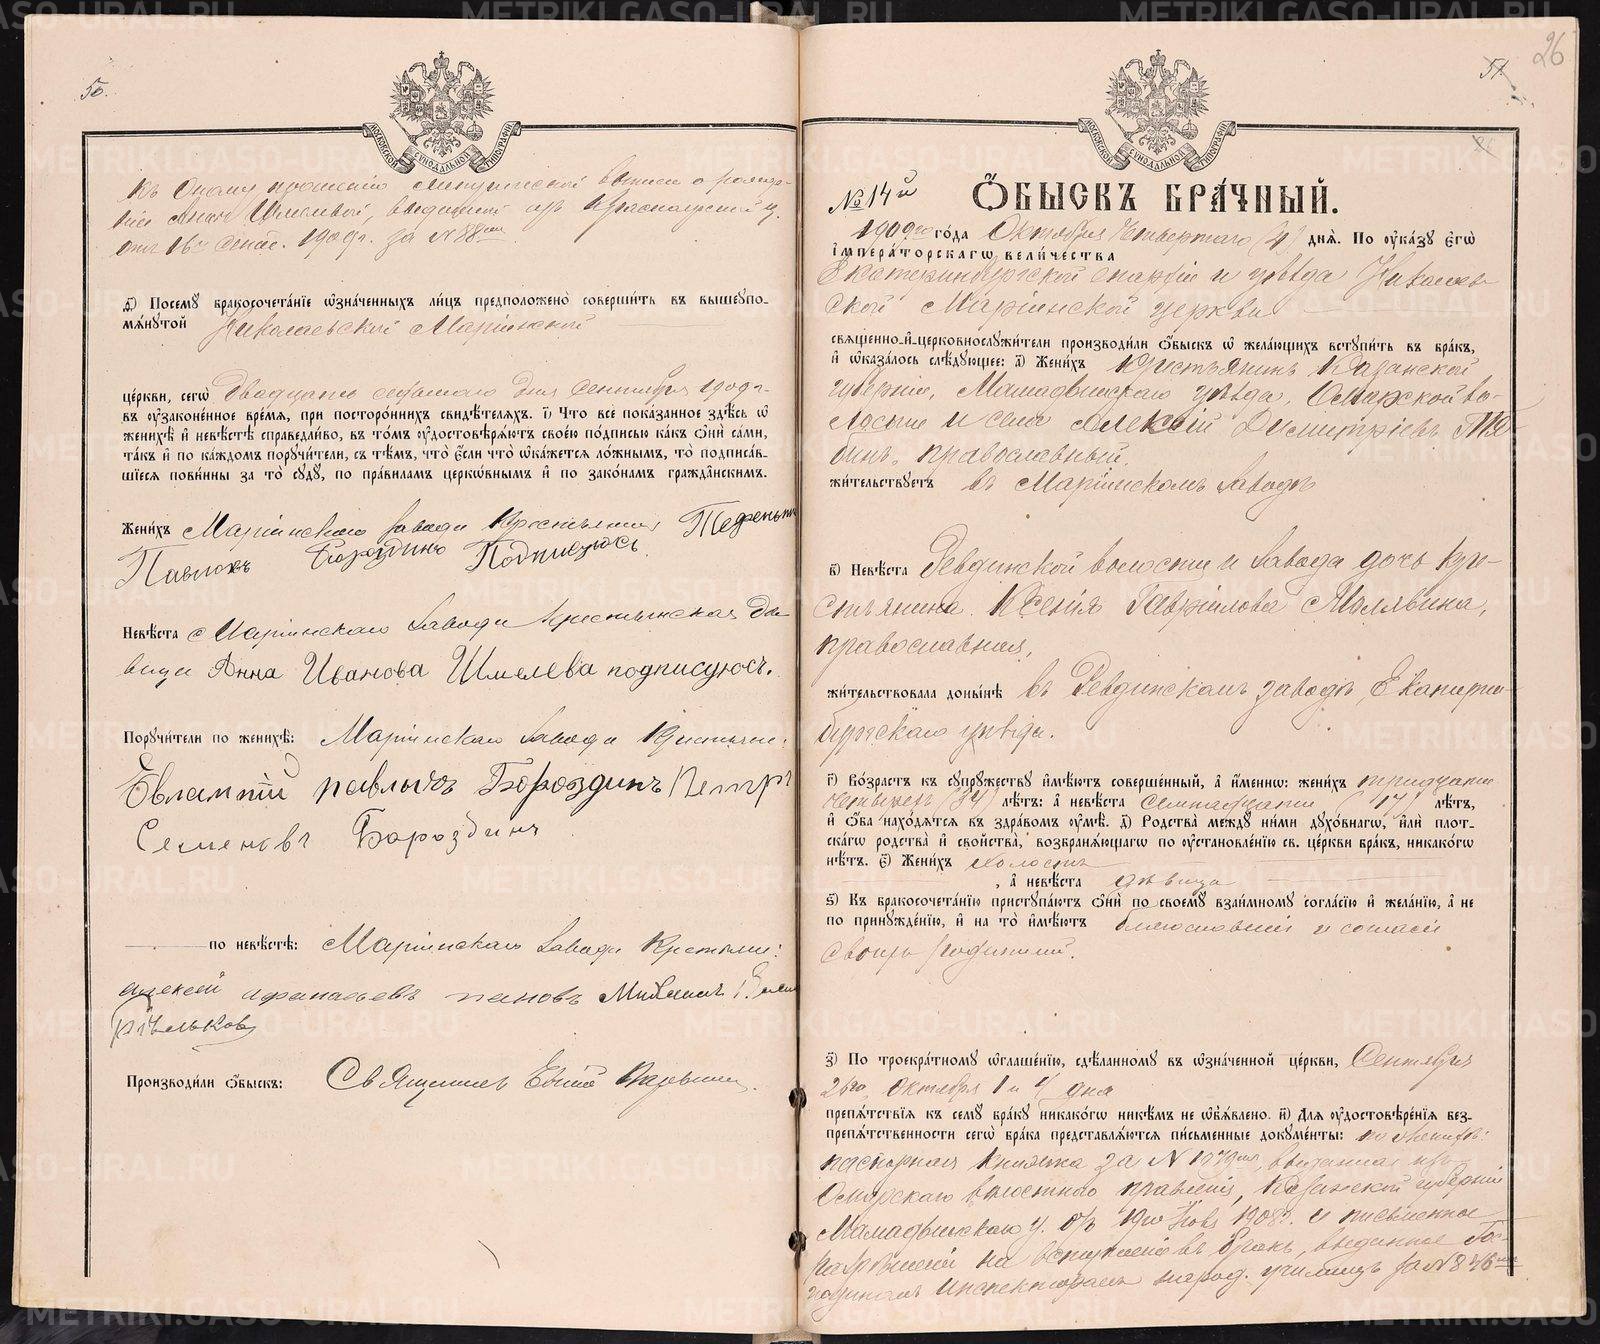 50.
МОСКОВСКОЙ СѴНОДАЛЬНОЙ ТИПОГРАФІИ
къ сему прошенію метрической выписи о рожде-
ніи Анны Шмелевой, выданной изъ Красноярской ц.
отъ 16го Сент. 1909г. за №88мъ
Посемꙋ бракосочета́нїе ѡ҆зна́ченныхъ ли́цъ предположено̀ соверши́ть въ вышеꙋпо-
мѧ́нꙋтой Николаевской Маріинской
це́ркви, сегѡ̀ двадцать седьмого дня Сентября 1909 г.
въ ᲂу҆зако́ненное вре́мѧ, при посторо́ннихъ свидѣ́телѧхъ. і҃) Что̀ всѐ пока́занное здѣ́сь ѡ҆
женихѣ̀ и҆ невѣ́стѣ справедли́во, въ то́мъ ᲂу҆достовѣрѧ́ютъ свое́ю по́дписью ка́къ ѻ҆нѝ са́ми,
та́къ и҆ по ка́ждомъ порꙋчи́тели, съ тѣ́мъ, что̀ є҆́сли что̀ ѡ҆ка́жетсѧ ло́жнымъ, то̀ подписа́в-
шїесѧ пови́нны за то̀ сꙋдꙋ̀, по пра́виламъ церко́внымъ и҆ по зако́намъ гражда́нскимъ.
Жени́хъ Маріинскаго завода крестьянинъ Терентій
Павловъ Бороздинъ Подписуюсь.
Невѣ́ста Маріинскаго Завода Крестьянская дѣ-
вица Анна Иванова Шмелева подписуюсь.
Порꙋчи́тели по женихѣ̀: Маріинскаго Завода Крестьяне:
Евлампій павлычъ Бороздинъ Петръ
Семеновъ Бороздинъ
по невѣ́стѣ: Маріинскаго Завода Крестьяне:
алексей афанасьевъ пановъ Михаилъ
Производи́ли ѻ҆́быскъ: Священникъ
51
26
МОСКОВСКОЙ СѴНОДАЛЬНОЙ ТИПОГРАФІИ
№14й
Ѻ҆́БЫСКЪ БРА́ЧНЫЙ.
1909го го́да Октября Четвертаго (4) днѧ̀. По ᲂу҆ка́зꙋ є҆гѡ̀
і҆мпера́торскагѡ вели́чества
Екатеринбургской епархіи и уѣзда Николаев-
ской Маріинской церкви
свѧще́нно-и҆-церковнослꙋжи́тели производи́ли ѻ҆́быскъ ѡ҆ жела́ющихъ встꙋпи́ть въ бра́къ,
и҆ ѡ҆каза́лось слѣ́дꙋющее: а҃) Жени́хъ Крестьянинъ Казанской
губерніи, Мамадышскаго уѣзда, Омарской во-
лости и села Алексій Димитріевъ Тя-
бинъ, православный.
жи́тельствꙋетъ въ Маріинскомъ Заводѣ
в҃) Невѣ́ста Ревдинской волости и Завода дочь кре-
стьянина Ксенія Гаврилова Малявина,
православная,
жи́тельствовала доны́нѣ въ Ревдинскомъ заводѣ, Екатерин-
бургскаго уѣзда.
г҃) Во́зрастъ къ сꙋпрꙋ́жествꙋ и҆мѣ́ютъ соверше́нный, а҆ и҆́меннѡ: жени́хъ тридцати
четырехъ (34) лѣ́тъ: а҆ невѣ́ста семнадцати (17) лѣ́тъ,
и҆ ѻ҆́ба нахо́дѧтсѧ въ здра́вомъ ᲂу҆мѣ̀. д҃) Родства̀ ме́ждꙋ ни́ми дꙋхо́внагѡ, и҆лѝ пло́т-
ска́гѡ родства̀ и҆ сво́йства, возбранѧ́ющагѡ по ᲂу҆становле́нїю св. це́ркви бра́къ, никако́гѡ
нѣ́тъ. є҃) Жени́хъ холостъ
, а҆ невѣ́ста дѣвица
ѕ҃) Къ бракосочета́нїю пристꙋпа́ютъ ѻ҆нѝ по своемꙋ̀ взаи́мномꙋ согла́сїю и҆ жела́нїю, а҆ не
по принꙋжде́нїю, и҆ на то̀ и҆мѣ́ютъ благословеніе и согласіе
своихъ родителей.
з҃) По троекра́тномꙋ ѡ҆глаше́нїю, сдѣ́ланномꙋ въ ѡ҆зна́ченной це́ркви, Сентября
26го, Октября 1 и 4 дня
препѧ́тствїѧ къ семꙋ̀ бра́кꙋ никако́гѡ никѣ́мъ не ѡ҆б̾ѧ́влено. и҃) Длѧ ᲂу҆достовѣре́нїѧ без-
препѧ́тственности сегѡ̀ бра́ка представлѧ́ютсѧ пи́сьменные докꙋме́нты: по женихѣ:
паспортная книжка за № выданная изъ
Омарскаго волостного правленія, Казанской губерніи
Мамадышскаго у. отъ 19го Ноября 1908г. и письменное
разрѣшеніе на вступленіе въ бракъ, выданное Го-
родскимъ инспекторомъ народ. училищъ за №846мъ
METRIKI.GASO-URAL.RU